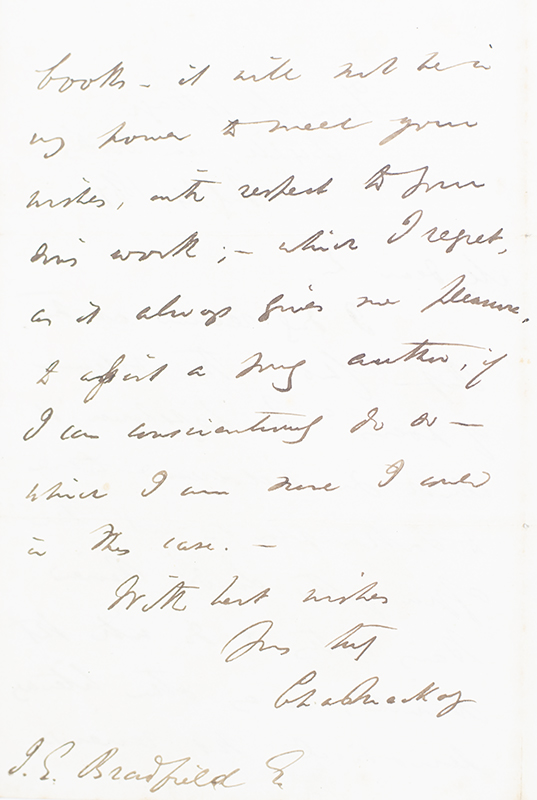 books – it will not be in
my power to meet your
wishes, with respect to your
work ; – which I regret,
as it always gives me pleasure,
to assist a young author, if
I can conscientiously do so –
which I am sure I could
in this case. –
With best wishes
Yours truly
Chas Mackay
J. E. Bradfield E.